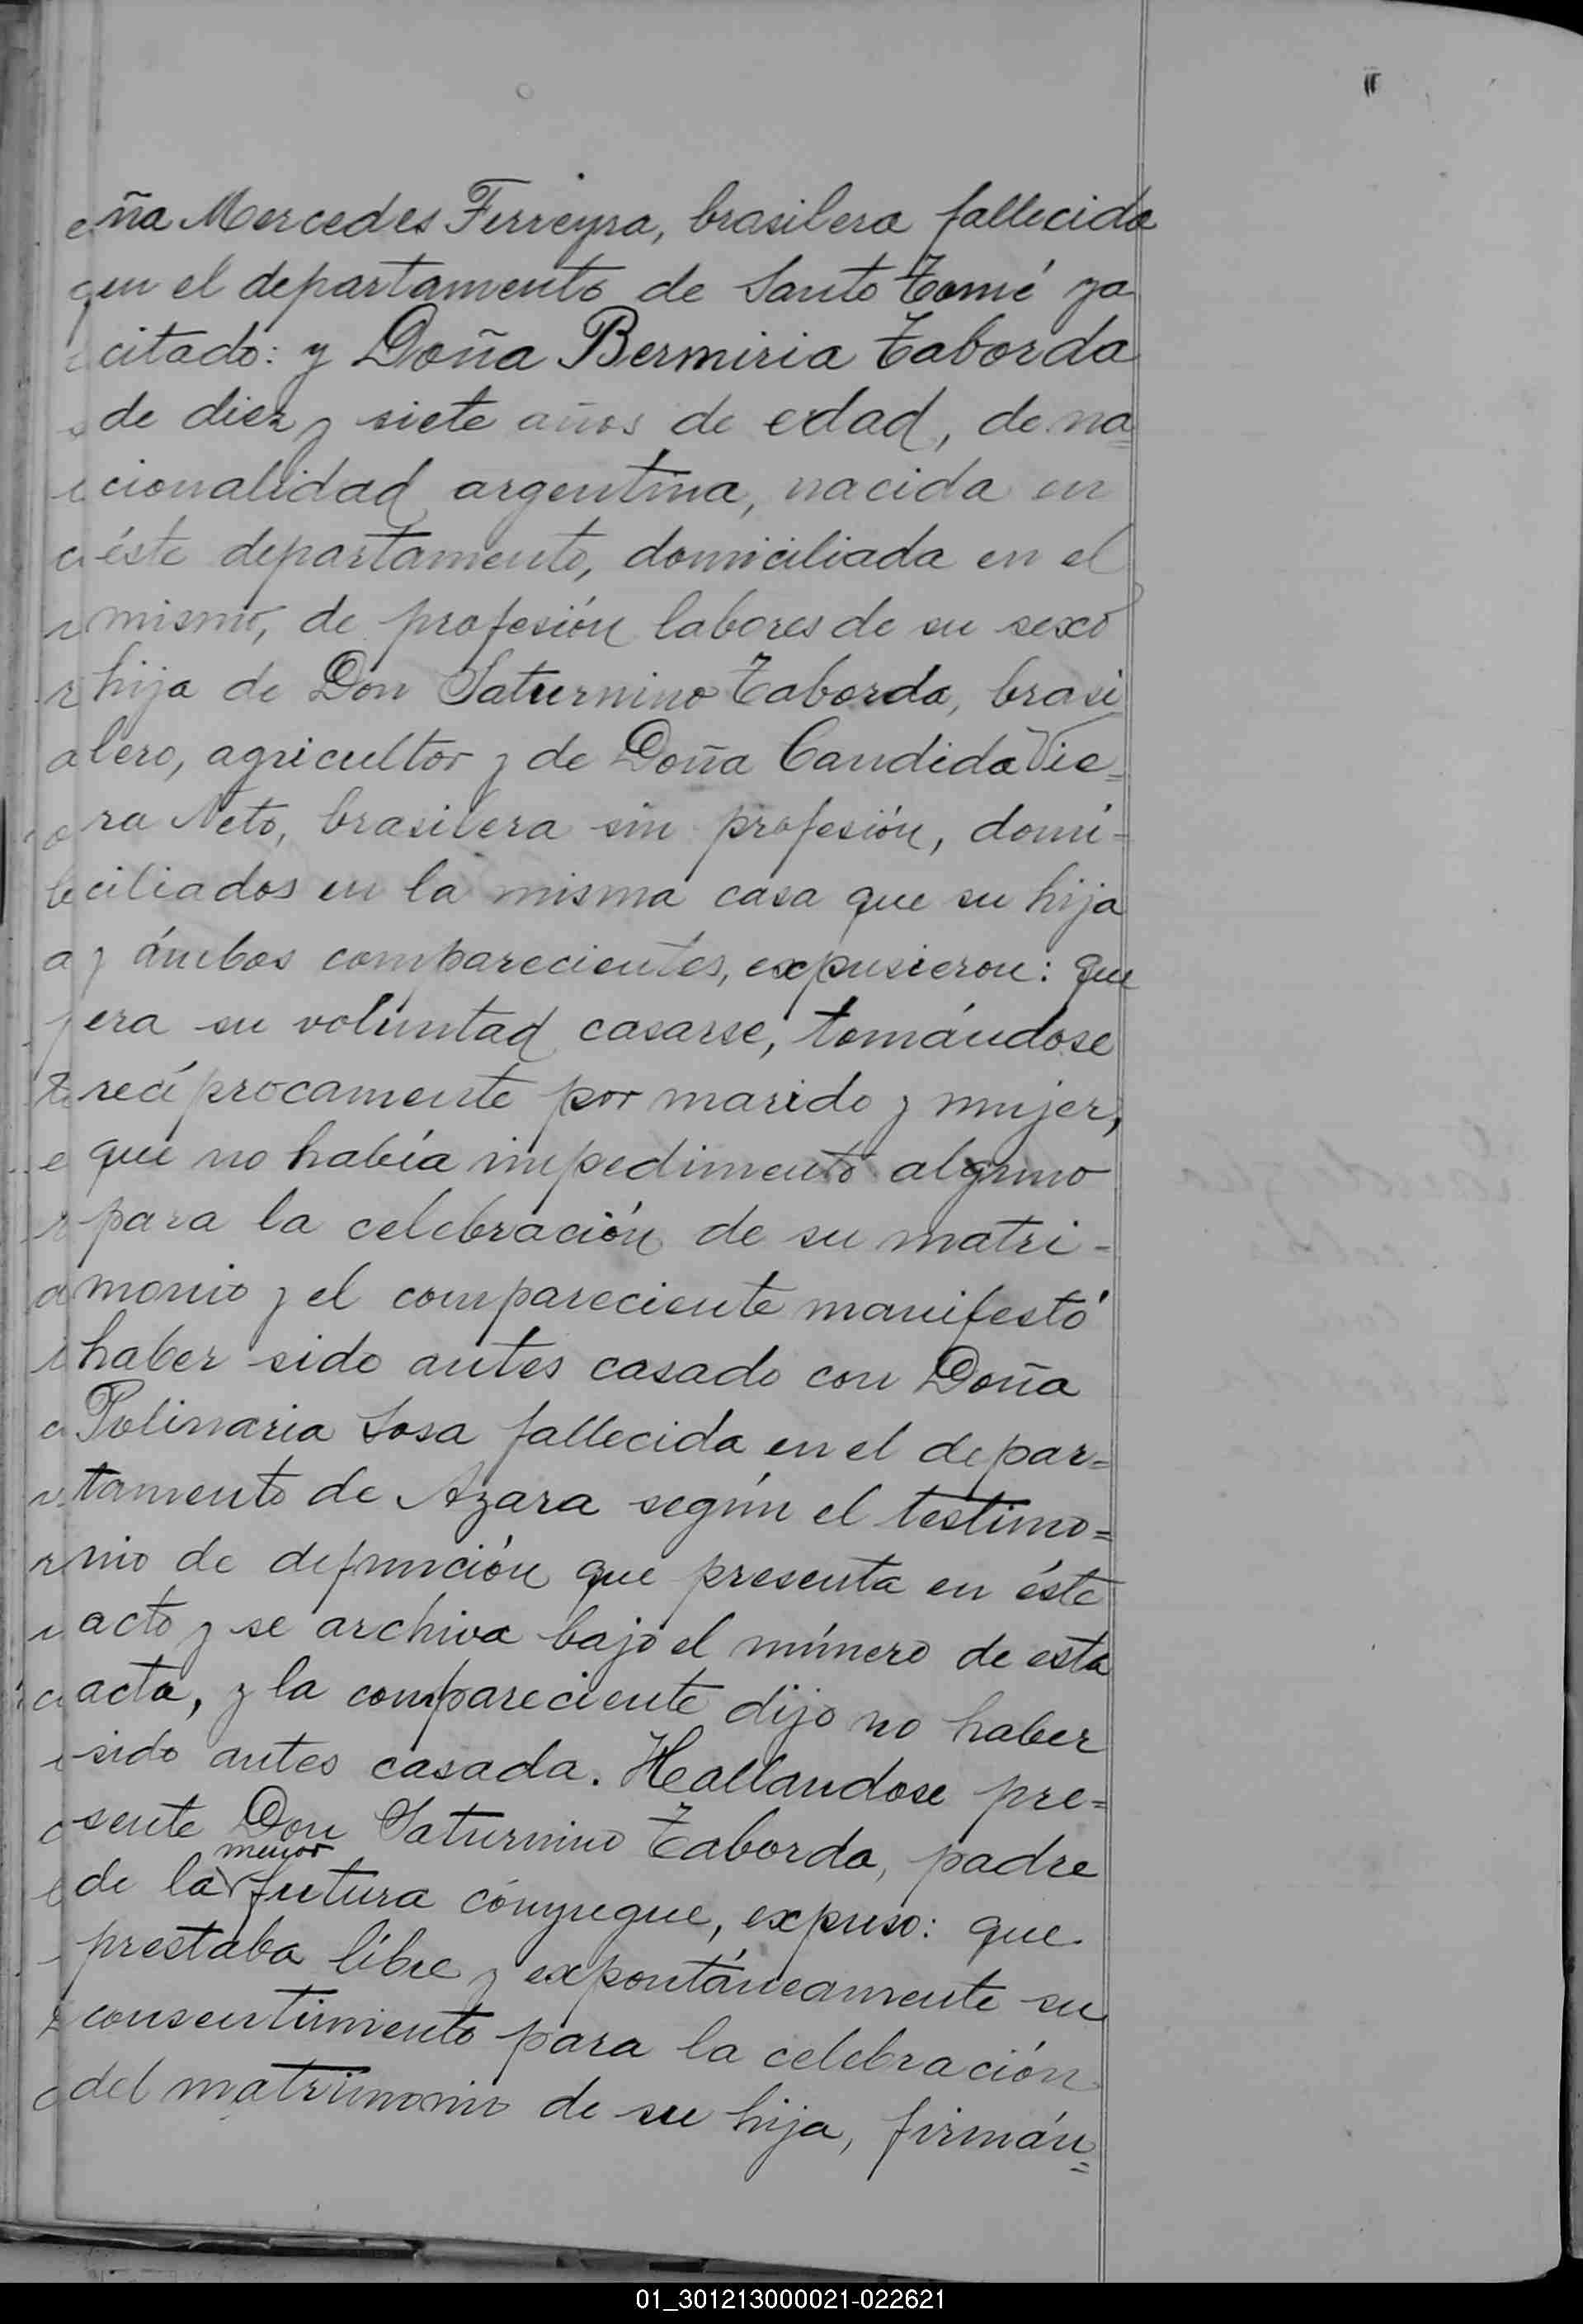 ña Mercedes Ferreyra, brasilera fallecida
en el departamento de Santo Tomé ya
citado: y Doña Bermiria Taborda
de diez y siete años de edad, de na=
cionalidad argentina, nacida en
éste departamento, domiciliada en el
mismo, de profesión labores de su sexo
hija de Don Saturnino Taborda, brasi
lero, agricultor y de Doña Candida Vie=
ra Neto, brasilera sin profesión, domi-
ciliados en la misma casa que su hija
y ámbos comparecientes, expusieron: que
era su voluntad casarse, tomándose
recíprocamente por marido y mujer,
que no había impedimento alguno
para la celebración de su matri-
monio y el compareciente manifestó
haber sido antes casado con Doña
Polinaria Sosa fallecida en el depar=
tamento de Azara según el testimo=
nio de defunción que presenta en éste
acto y se archiva bajo el número de esta
acta, y la compareciente dijo no haber
sido antes casada. Hallandose pre=
sente Don Saturnino Taborda, padre
menor
de la futura cónyugue, expuso: que
prestaba libre y expontáneamente su
consentimiento para la celebración
del matrimonio de su hija, firmán=
01_301213000021-022621